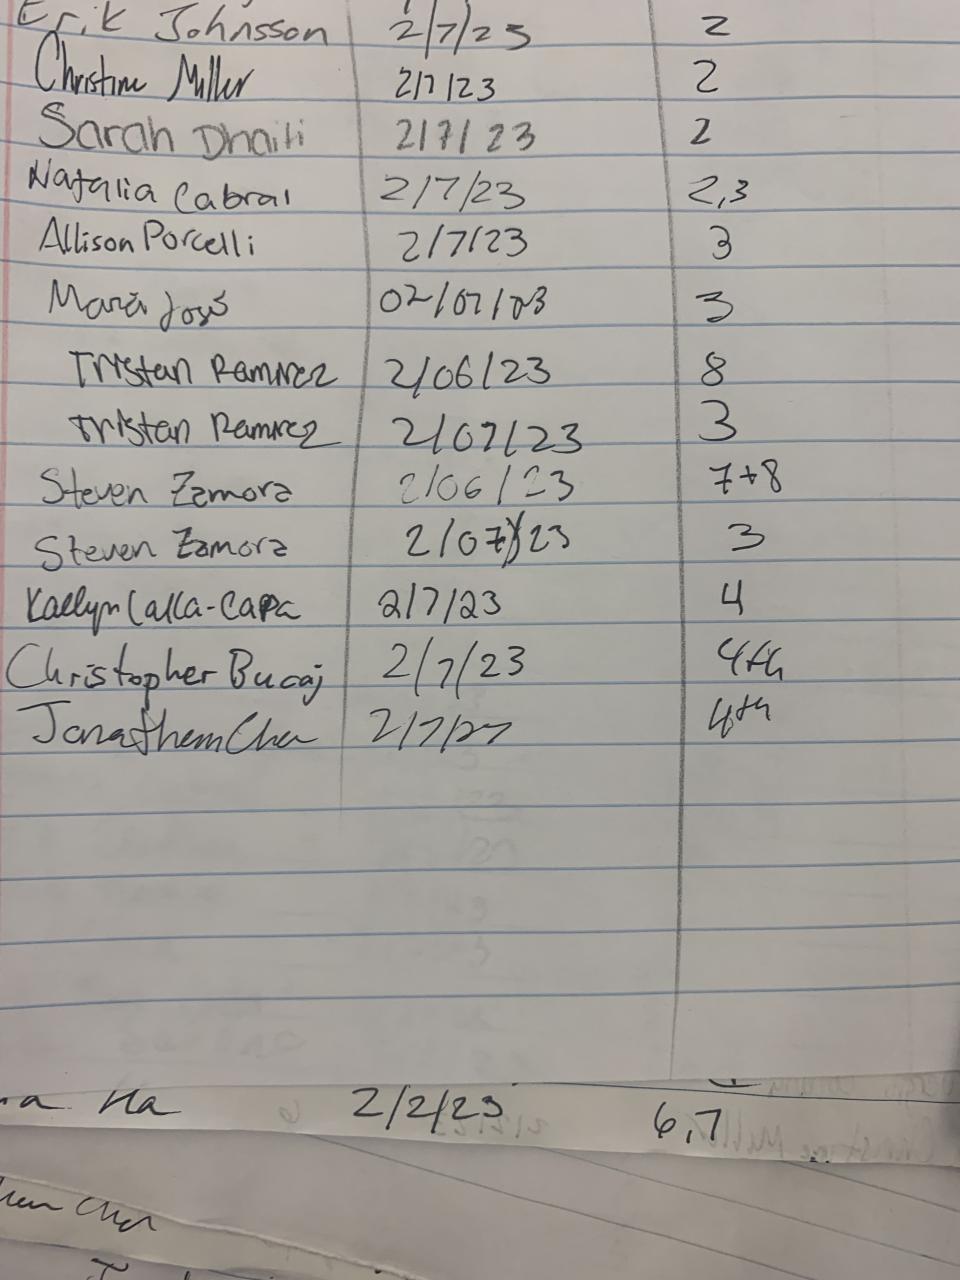 Erik Johnsson 2/7/23 2
Christine Miller 2/7/23 2
Sarah Dhaiti 2/7/23 2
Natalia Cabral 2/7/23 2,3
Allison Porcelli 2/7/23 3
María José 02/07/03 3
Tristan Ramirez 2/06/23 8
Tristan Ramirez 2/07/23 3
Steven Zamora 2/06/23 7+8
Steven Zamora 2/07/23 3
Kaelyn Calla-Capa 2/7/23 4
Christopher Bucaj 2/7/23 4th
Jonathan Chen 2/7/23 4th
Ha 2/2/23 6,7
Chen